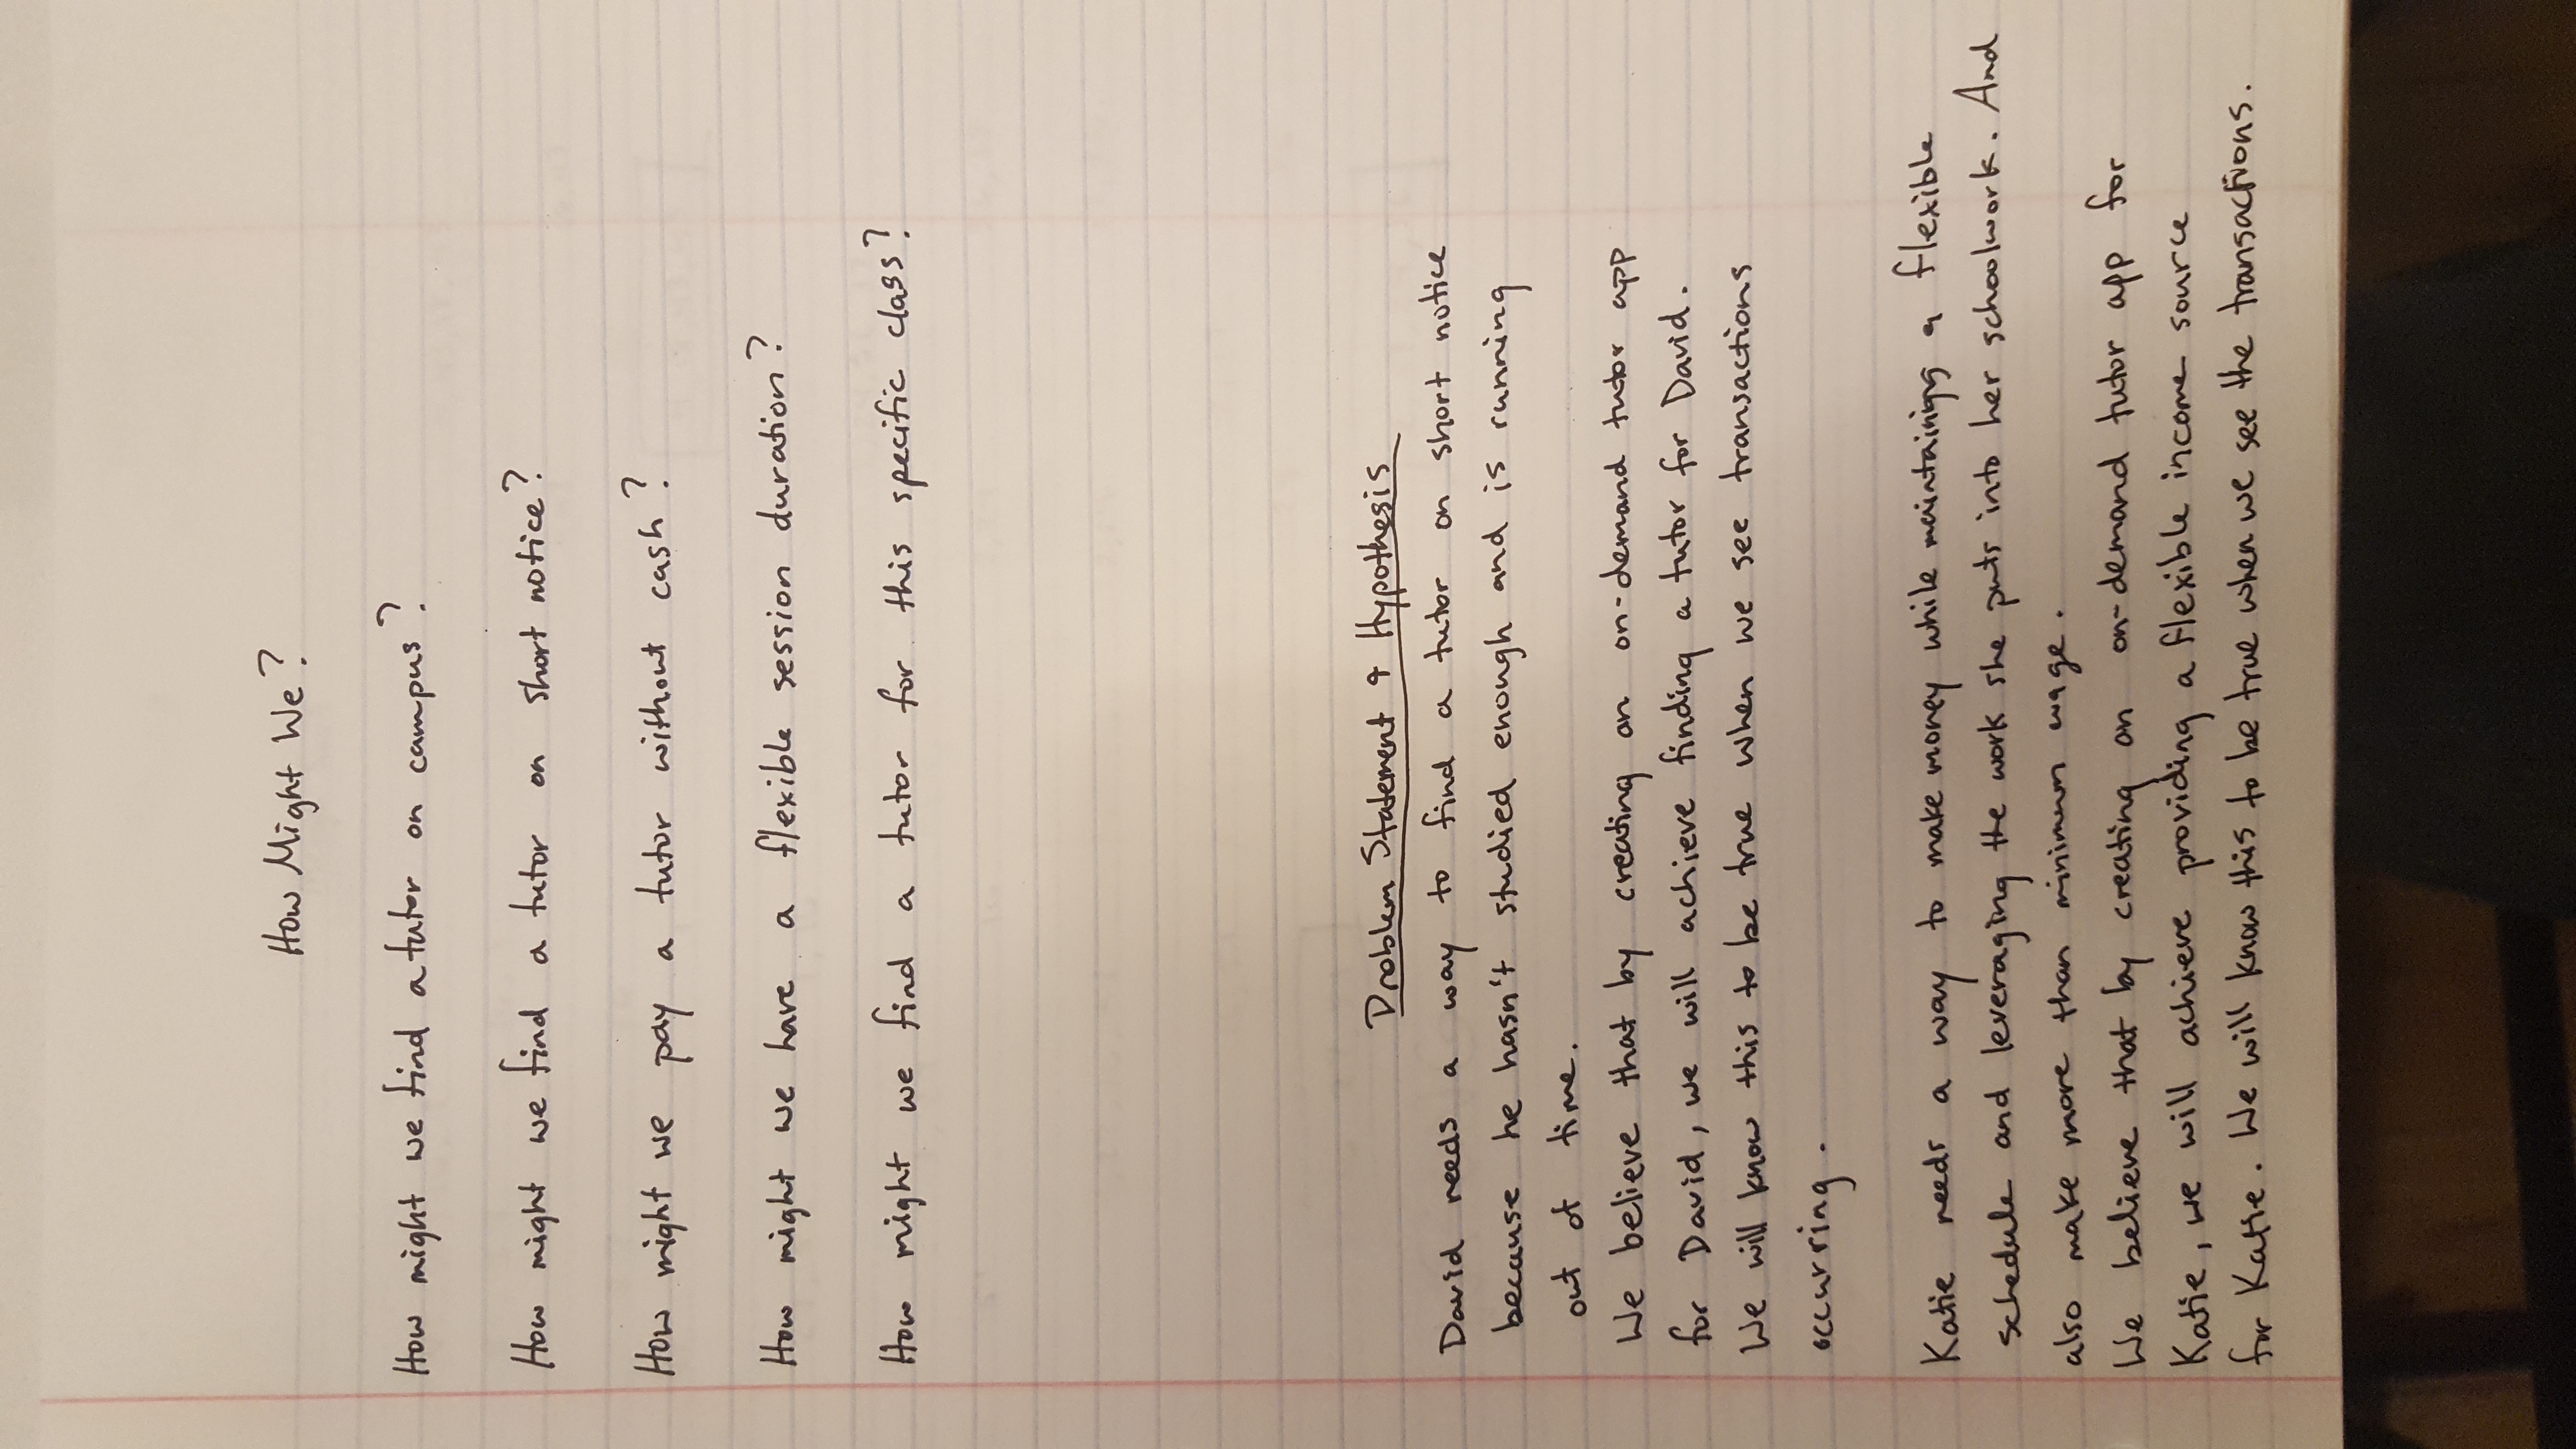 How Might We?
How might we find a tutor on campus?
How might we find a tutor on short notice?
How might we pay a tutor without cash?
How might we have a flexible session duration?
How might we find a tutor for this specific class?
Problem Statement & Hypothesis
David needs a way to find a tutor on short notice
because he hasn't studied enough and is running
out of time.
We believe that by creating an on-demand tutor app
for David, we will achieve finding a tutor for David.
We will know this to be true when we see transactions
occurring.
Katie needs a way to make money while maintaining a flexible
schedule and leveraging the work she puts into her schoolwork. And
also make more than minimum wage.
We believe that by creating an on-demand tutor app for
Katie, we will achieve providing a flexible income source
for Katie. We will know this to be true when we see the transactions.